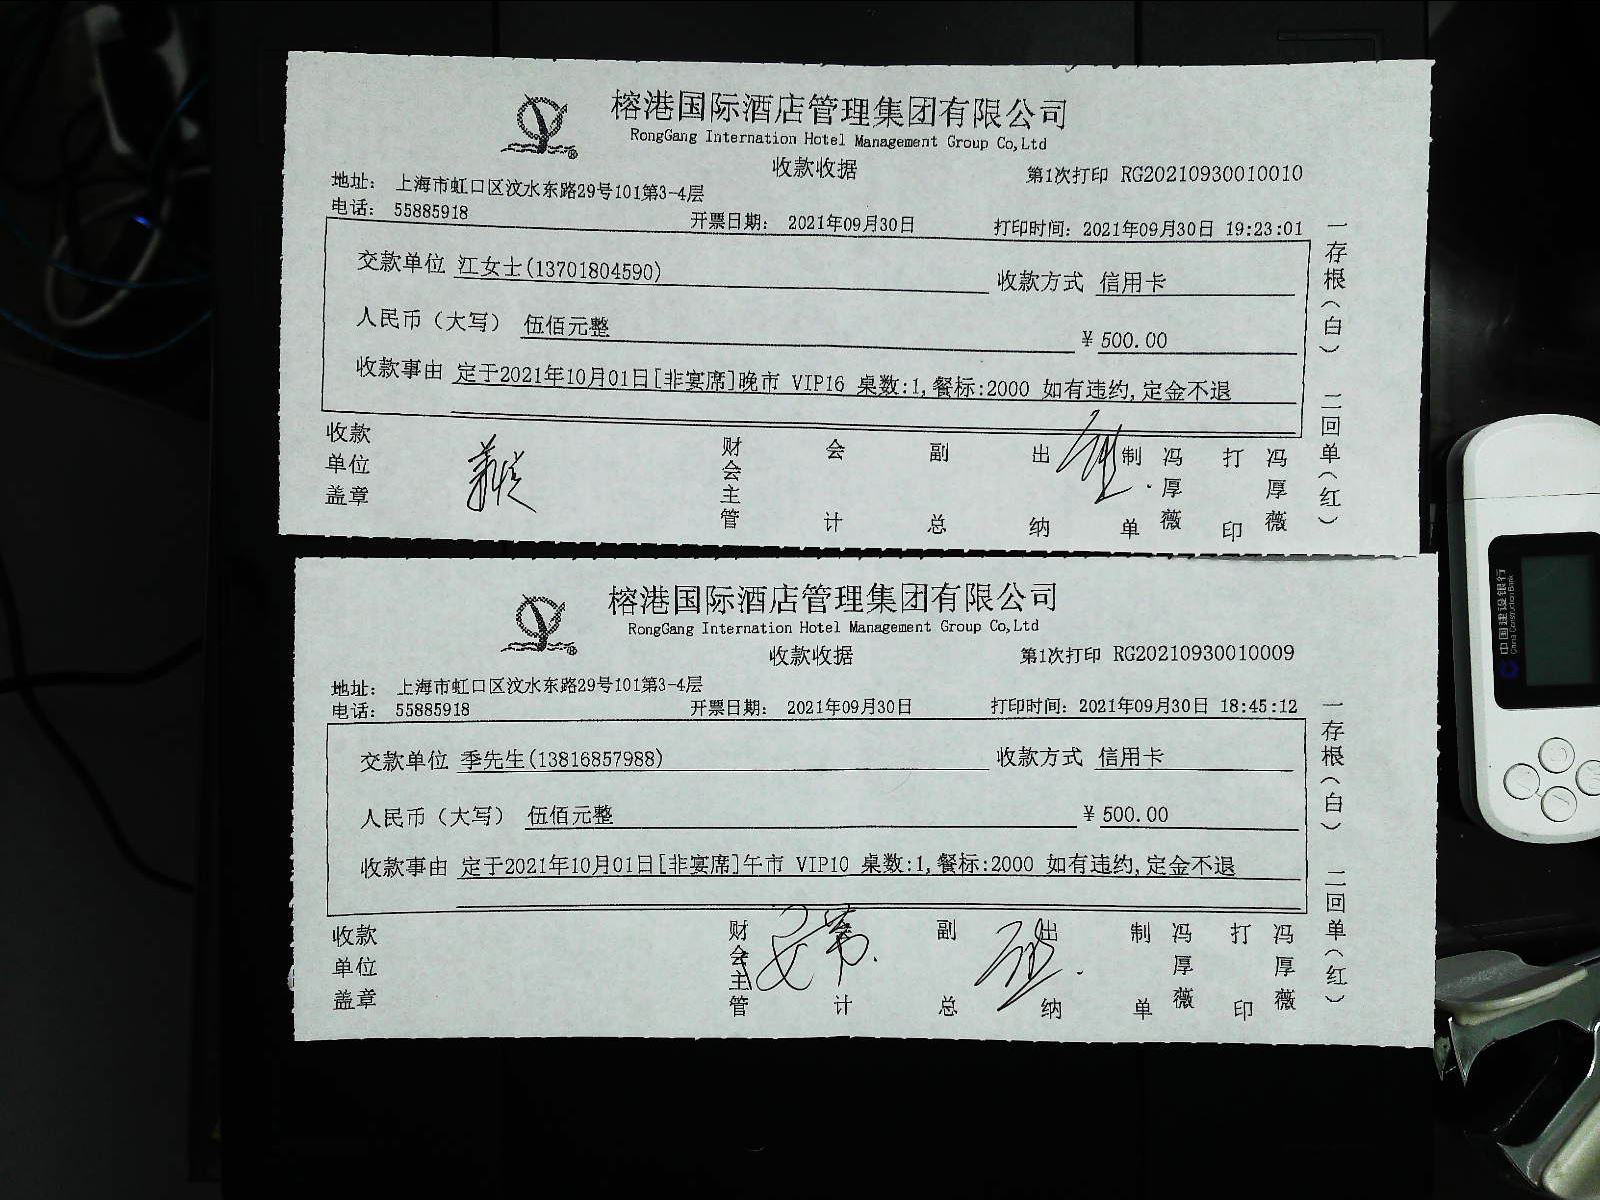 榕港国际酒店管理集团有限公司
RongGang Internation Hotel Management Group Co,Ltd
收款收据
第1次打印 RG20210930010010
地址： 上海市虹口区汶水东路29号101第3-4层
电话： 55885918 开票日期： 2021年09月30日 打印时间：2021年09月30日 19:23:01
交款单位 江女士(13701804590) 收款方式 信用卡
人民币（大写） 伍佰元整 ¥ 500.00
收款事由 定于2021年10月01日[非宴席]晚市 VIP16 桌数:1,餐标:2000 如有违约,定金不退
收款单位盖章 财会主管 会计 副总 出纳 制单 冯厚薇 打印 冯厚薇
一存根（白） 二回单（红）
榕港国际酒店管理集团有限公司
RongGang Internation Hotel Management Group Co,Ltd
收款收据
第1次打印 RG20210930010009
地址： 上海市虹口区汶水东路29号101第3-4层
电话： 55885918 开票日期： 2021年09月30日 打印时间：2021年09月30日 18:45:12
交款单位 季先生(13816857988) 收款方式 信用卡
人民币（大写） 伍佰元整 ¥ 500.00
收款事由 定于2021年10月01日[非宴席]午市 VIP10 桌数:1,餐标:2000 如有违约,定金不退
收款单位盖章 财会主管 会计 副总 出纳 制单 冯厚薇 打印 冯厚薇
一存根（白） 二回单（红）
中国建设银行
China Construction Bank